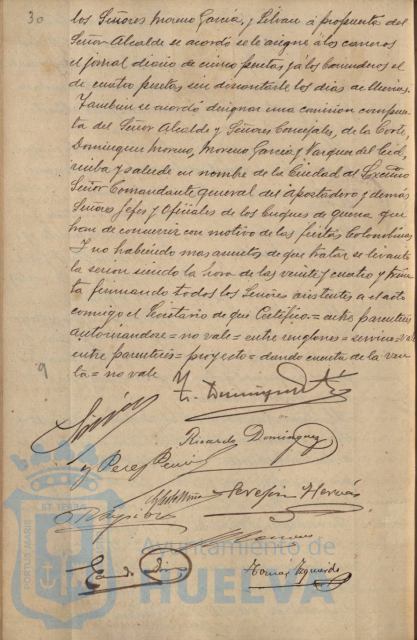 30
los Señores Moreno García, y Pelvau á propuesta del
Señor Alcalde se acordó se le asigne á los carreros
el jornal diario de cinco pesetas y á los barrenderos el
de cuatro pesetas sin descontarle los dias de lluvias.
Tambien se acordó designar una comision compues-
ta del Señor Alcalde y Señores Concejales, de la Corte,
Dominguez Moreno, Moreno García y Vazquez del Cid,
reciba y salude en nombre de la Ciudad al Excmo
Señor Comandante general del Apostadero y demás
Señores Jefes y Oficiales de los buques de guerra que
han de concurrir con motivo de las fiestas Colombinas
Y no habiendo mas asuntos de que tratar se levantó
la sesion siendo la hora de las veinte y cuatro y trein-
ta firmando todos los Señores asistentes á el acto
conmigo el Secretario de que Certifico = entre parentesis
autorizandose = no vale = entre renglones = servicio = vale
entre parentesis = proyecto = dando cuenta de la ven-
ta = no vale
Dominguez
Ricardo Dominguez
y Perez
Serafin
Tomás Izquierdo
PORTUS MARIS ET TERRÆ
Ayuntamiento de
HUELVA